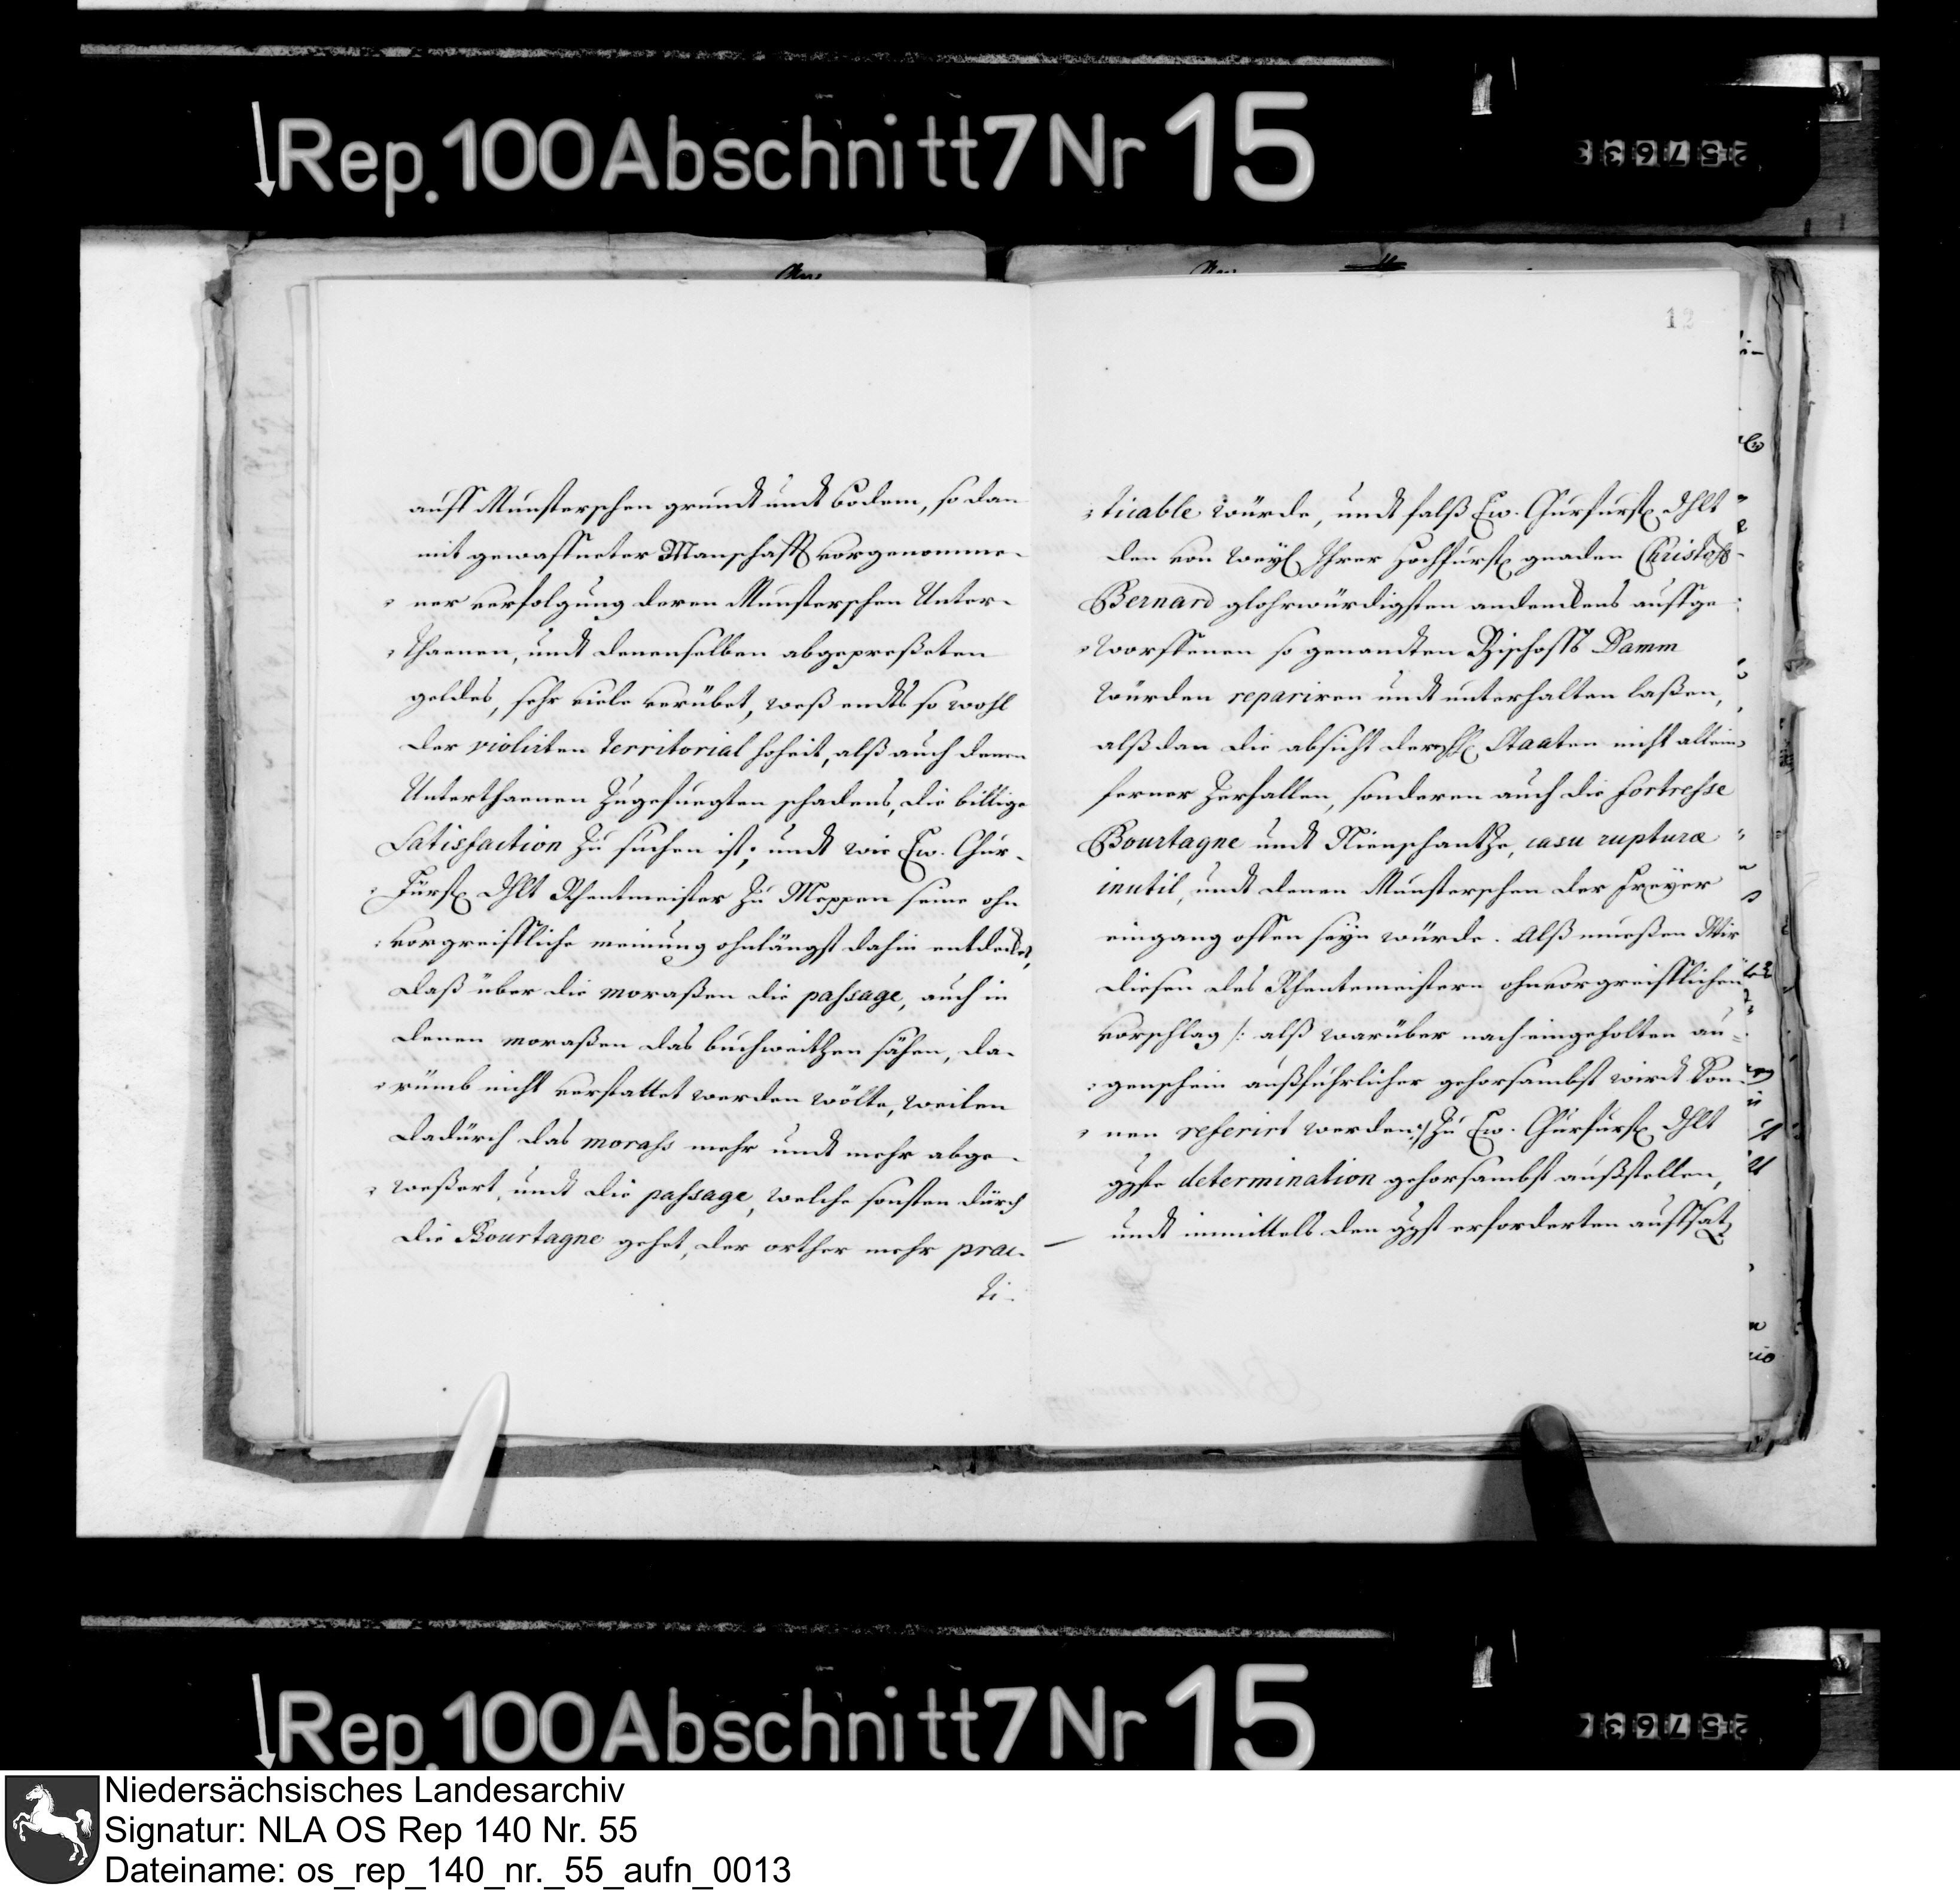 Rep. 100 Abschnitt 7 Nr 15
auff Munsterschen grundt undt bodem, so dan
mit gewaffneter Manschafft vorgenomme-
ner verfolgung deren Munsterschen Unter-
thaenen, undt denenselben abgepreßeten
geldes, sehr viele verübet, weß endts so wohl
der violirten territorial hoheit, alß auch denen
Unterthaenen zugefuegten schadens, die billige
Satisfaction zu suchen ist; undt wie Ew. Chur-
Fürstl. Dhlt Rhentmeister zu Meppen seine ohn
vorgreiffliche meinung ohnlängst dahin entdecket,
daß über die moraßen die passage, auch in
denen moraßen das buchweitzen sähen, da-
rümb nicht verstattet werden wölte, weilen
dadürch das morass mehr undt mehr abge-
weßert, undt die passage, welche sonsten dürch
die Bourtagne gehet, der orther mehr prac-
ti-
12
ticable würde, undt falß Ew. Churfurstl. Dhlt
den von weyl. Ihrer hochfurstl. gnaden Christoff
Bernard glohrwürdigsten andenckens auffge
worffenen so genandten Bischoffs Damm
würden repariren undt unterhalten laßen,
alßdan die absicht deren Staaten nicht allein
ferner zerfallen, sonderen auch die fortresse
Bourtagne undt Nienschantze, casu rupturæ
inutil, undt denen Munsterschen der freyer
eingang offen seyn würde. Alß mueßen Wir
diesen des Rhentemeistern ohnvorgreifflichen
vorschlag /: alß warüber nach eingeholten au-
genschein außführlicher gehorsambst wirdt kon-
nen referirt werden :/ zu Ew. Churfurstl. Dhlt
ggste determination gehorsambst außstellen,
undt inmittels den ggst erforderten auffsatz
Rep. 100 Abschnitt 7 Nr 15
Niedersächsisches Landesarchiv
Signatur: NLA OS Rep 140 Nr. 55
Dateiname: os_rep_140_nr._55_aufn_0013